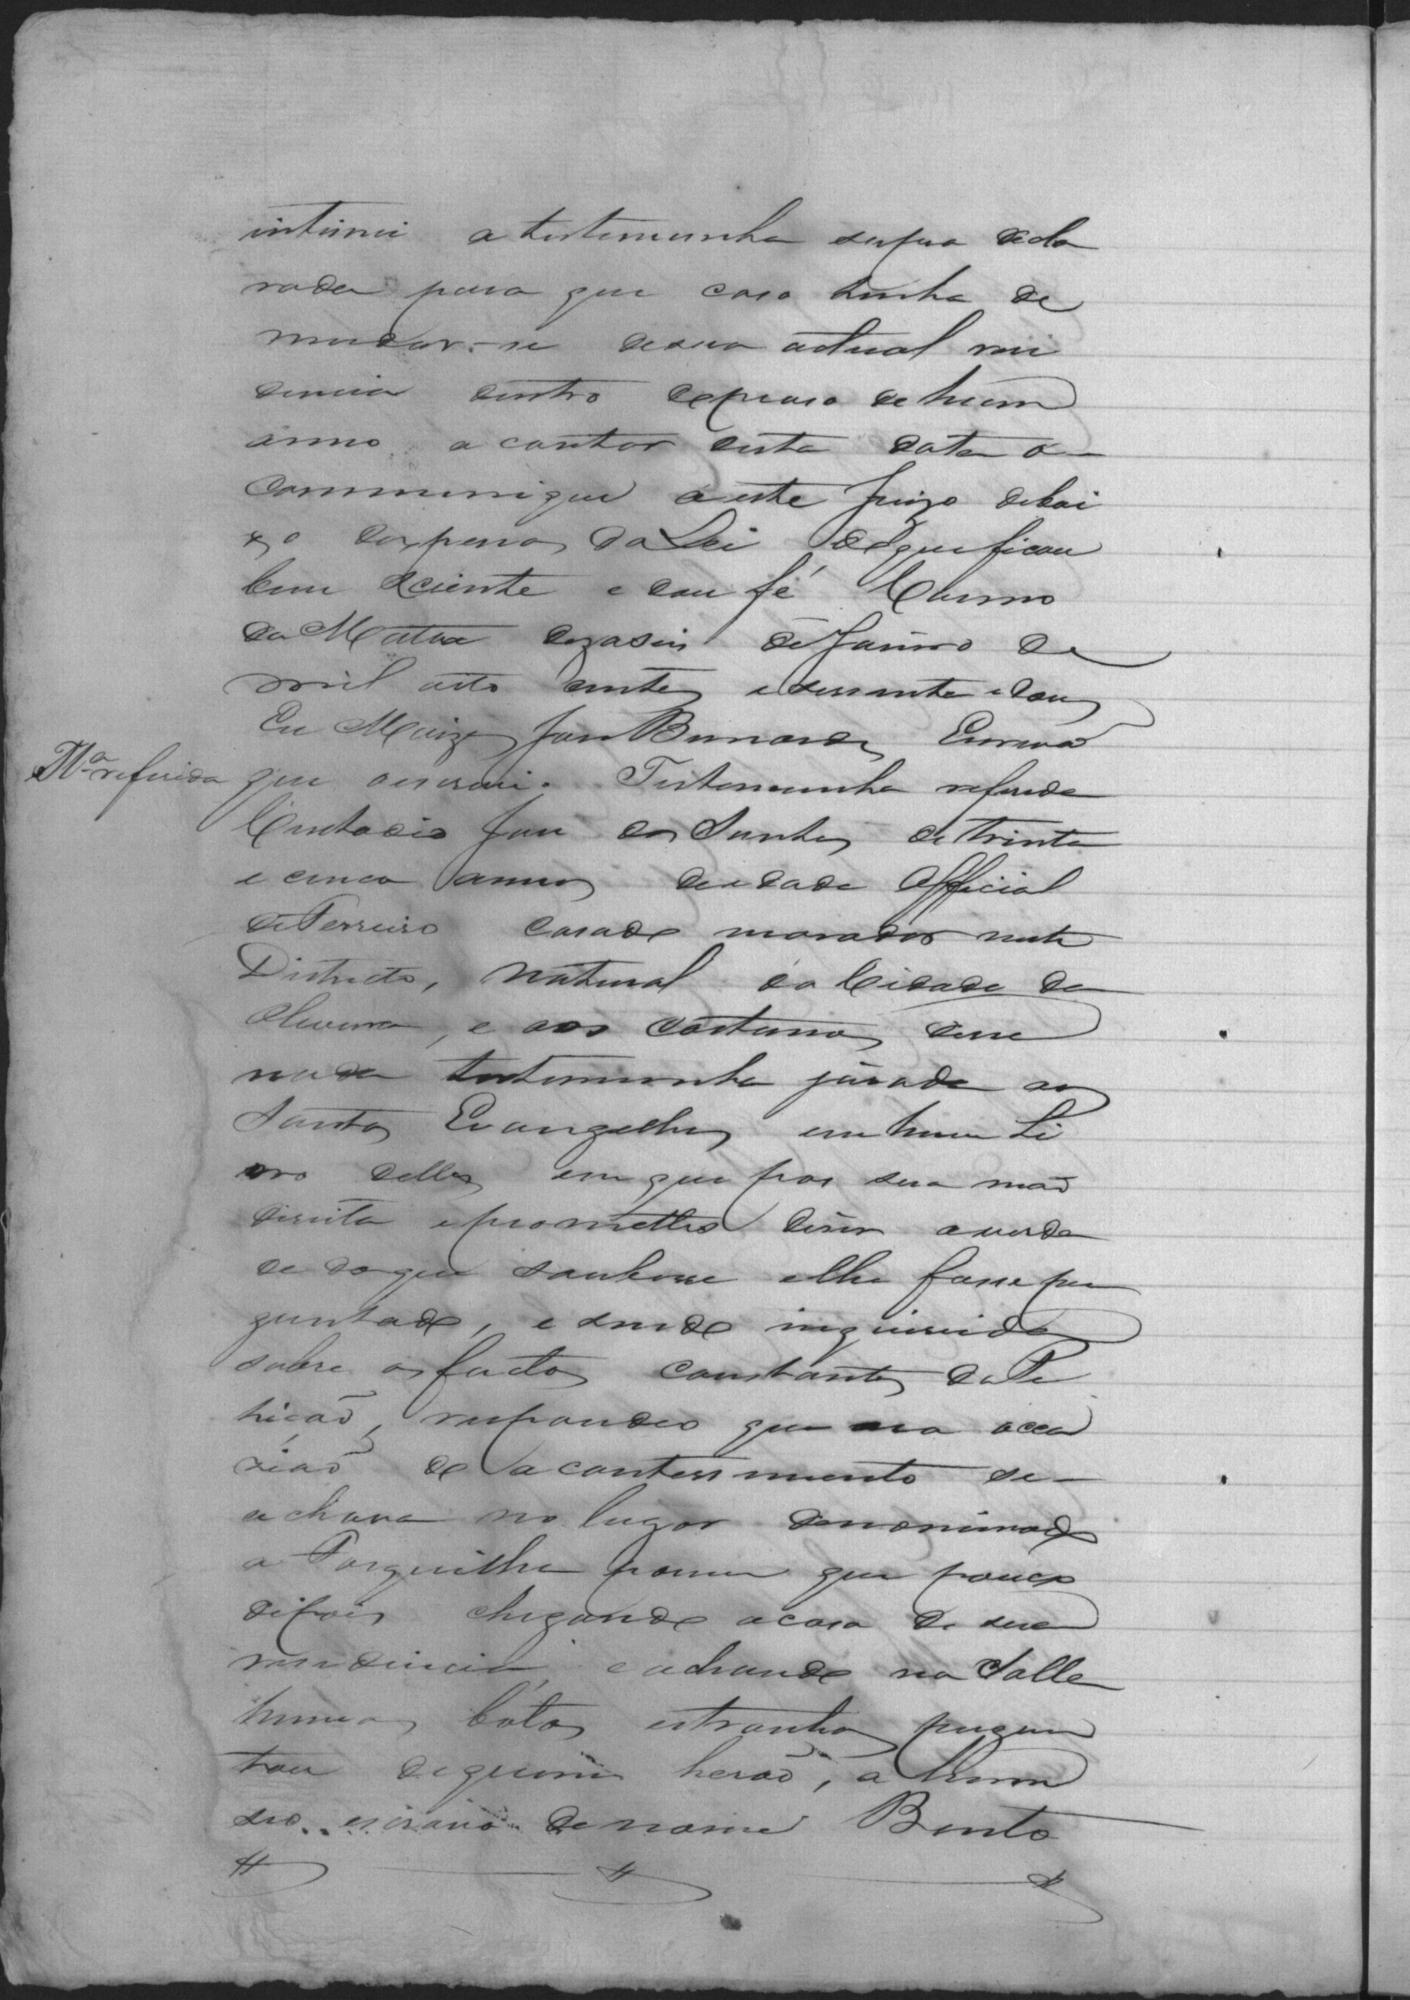 intimei a testemunha supra decla
rada para que caso tenha de
mudar-se desua actual resi
dencia dentro doprazo de hum
anno a contar desta data o
communique a este Juizo debai
xo das penas da Lei do que ficou
bem sciente e dou fé Carmo
da Matta dezaseis de Janeiro de
mil oito centos e sessenta e dous
Eu Moizes José Bernardes Escrivaõ
Tª referida
que oescrevi. Testemunha referida
Custodio José dos Santos de trinta
e cinco annos deidade official
de Ferreiro casado morador neste
Districto, natural da Cidade da
Oliveira, e aos costumes disse
nada testemunha jurada aos
Santos Evangelhos em hum Li
vro delles em que pos sua maõ
direita eprometteo diser averda
de doque soubesse elhe fosse per
guntado, e sendo inquerida
sobre os factos constantes daPe
tiçaõ, respondeo que na occa
ziaõ do acontessimento se
achava no lugar denominado
a Forquilha porem que pouco
depois chegando acasa de sua
residencia, e achando na Salla
humas botas estranhas pergun
tou dequem heraõ, a hum
seo escravo de nome Bento